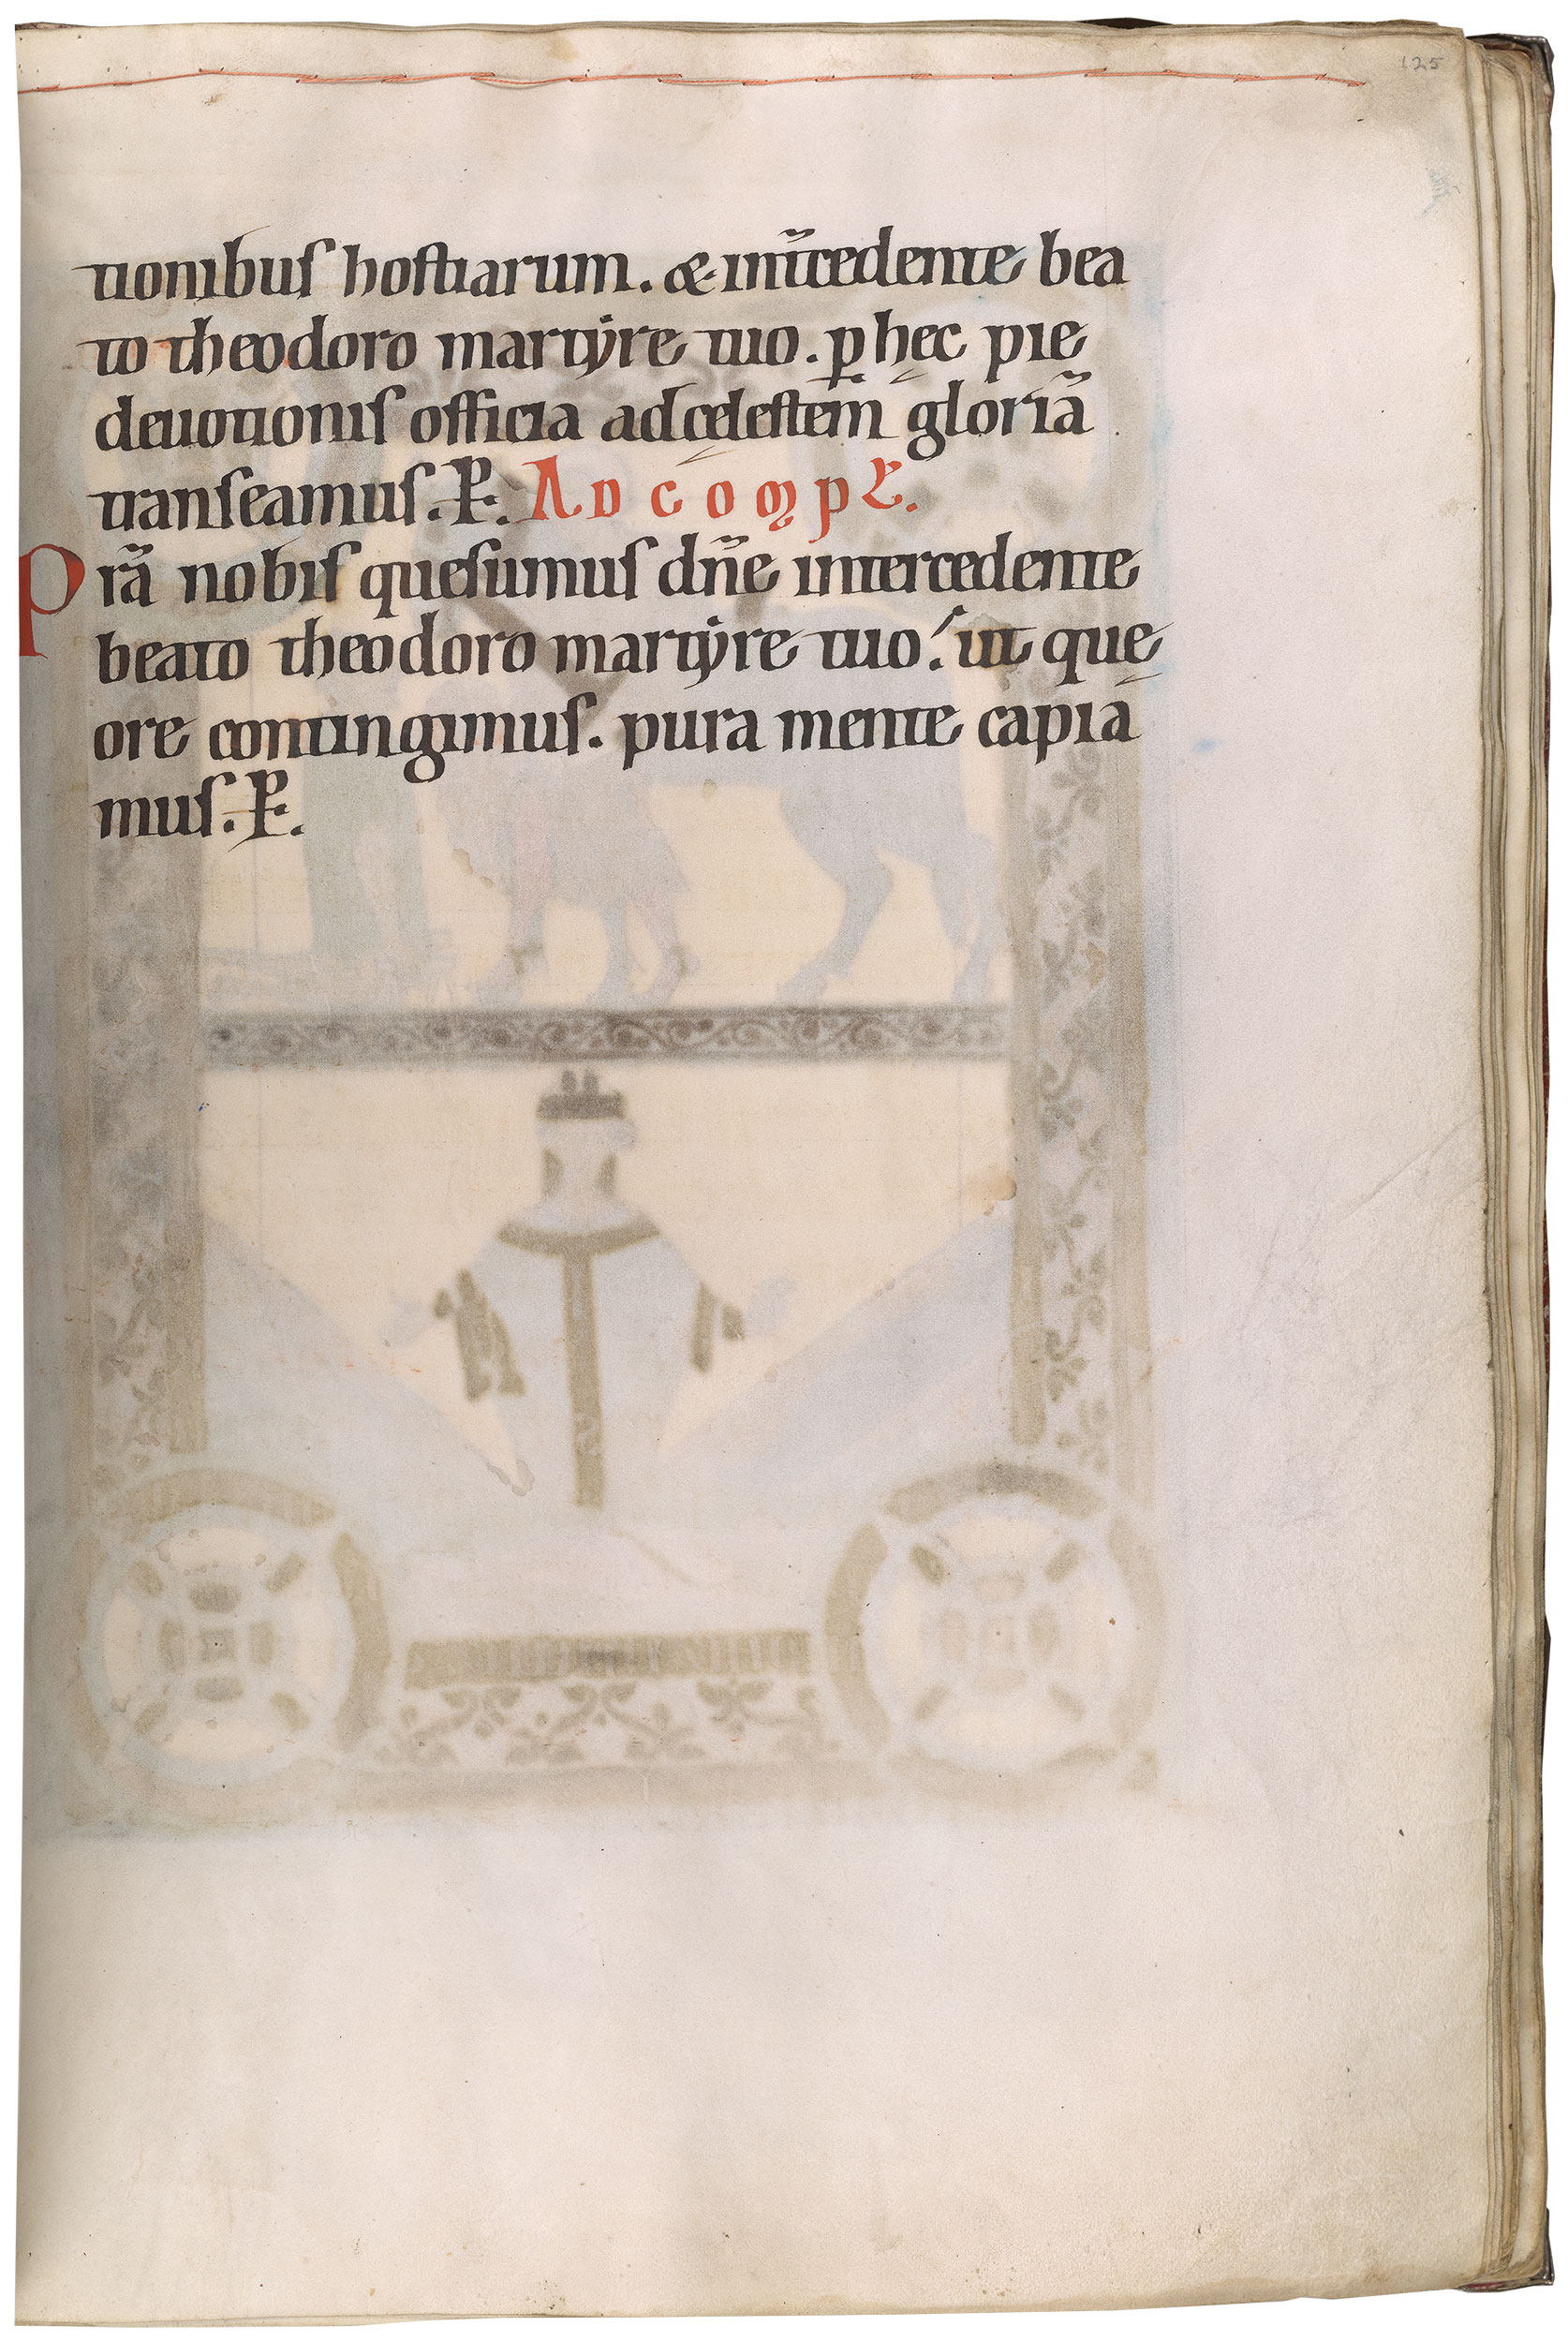 125
tionibus hostiarum. & int̃cedente bea
to theodoro martẏre tuo. ꝑ hęc pie
deuotionis officia ad cęlestem gloriã
transeamus. P. AD COMPL.
Prã nobis quesumus dñe intercedente
beato theodoro martẏre tuo. ut quę
ore contingimus. pura mente capia
mus. P.